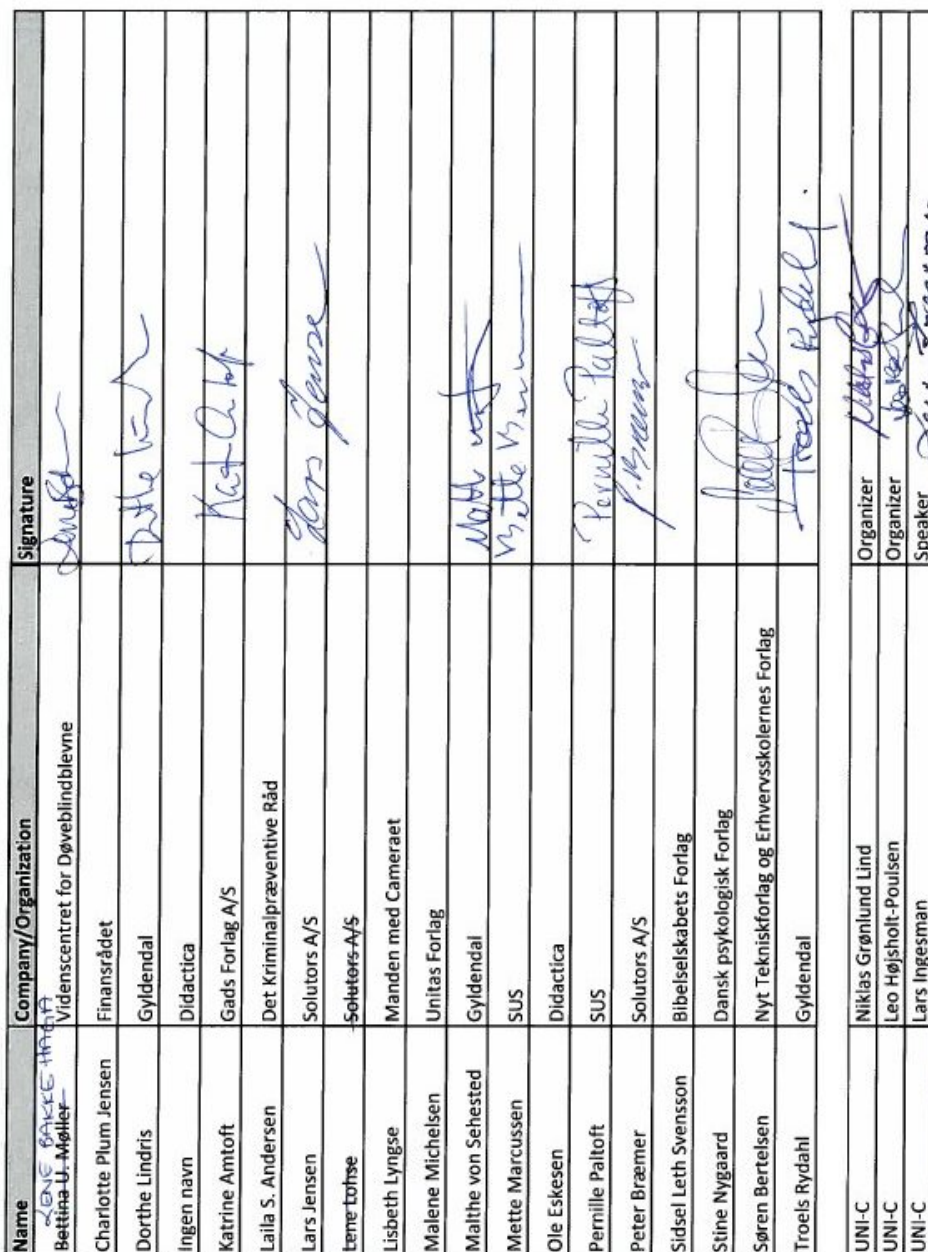 Name Company/Organization Signature
LENE BAKKE HAGA
Bettina U. Møller Videnscentret for Døveblindblevne
Charlotte Plum Jensen Finansrådet
Dorthe Lindris Gyldendal
Ingen navn Didactica
Katrine Amtoft Gads Forlag A/S
Laila S. Andersen Det Kriminalpræventive Råd
Lars Jensen Solutors A/S Lars Jensen
Lene Lohse Solutors A/S
Lisbeth Lyngse Manden med Cameraet
Malene Michelsen Unitas Forlag
Malthe von Sehested Gyldendal
Mette Marcussen SUS Mette
Ole Eskesen Didactica
Pernille Paltoft SUS Pernille Paltoft
Peter Bræmer Solutors A/S
Sidsel Leth Svensson Bibelselskabets Forlag
Stine Nygaard Dansk psykologisk Forlag
Søren Bertelsen Nyt Tekniskforlag og Erhvervsskolernes Forlag
Troels Rydahl Gyldendal Troels Rydahl
UNI-C Niklas Grønlund Lind Organizer
UNI-C Leo Højsholt-Poulsen Organizer
UNI-C Lars Ingesman Speaker